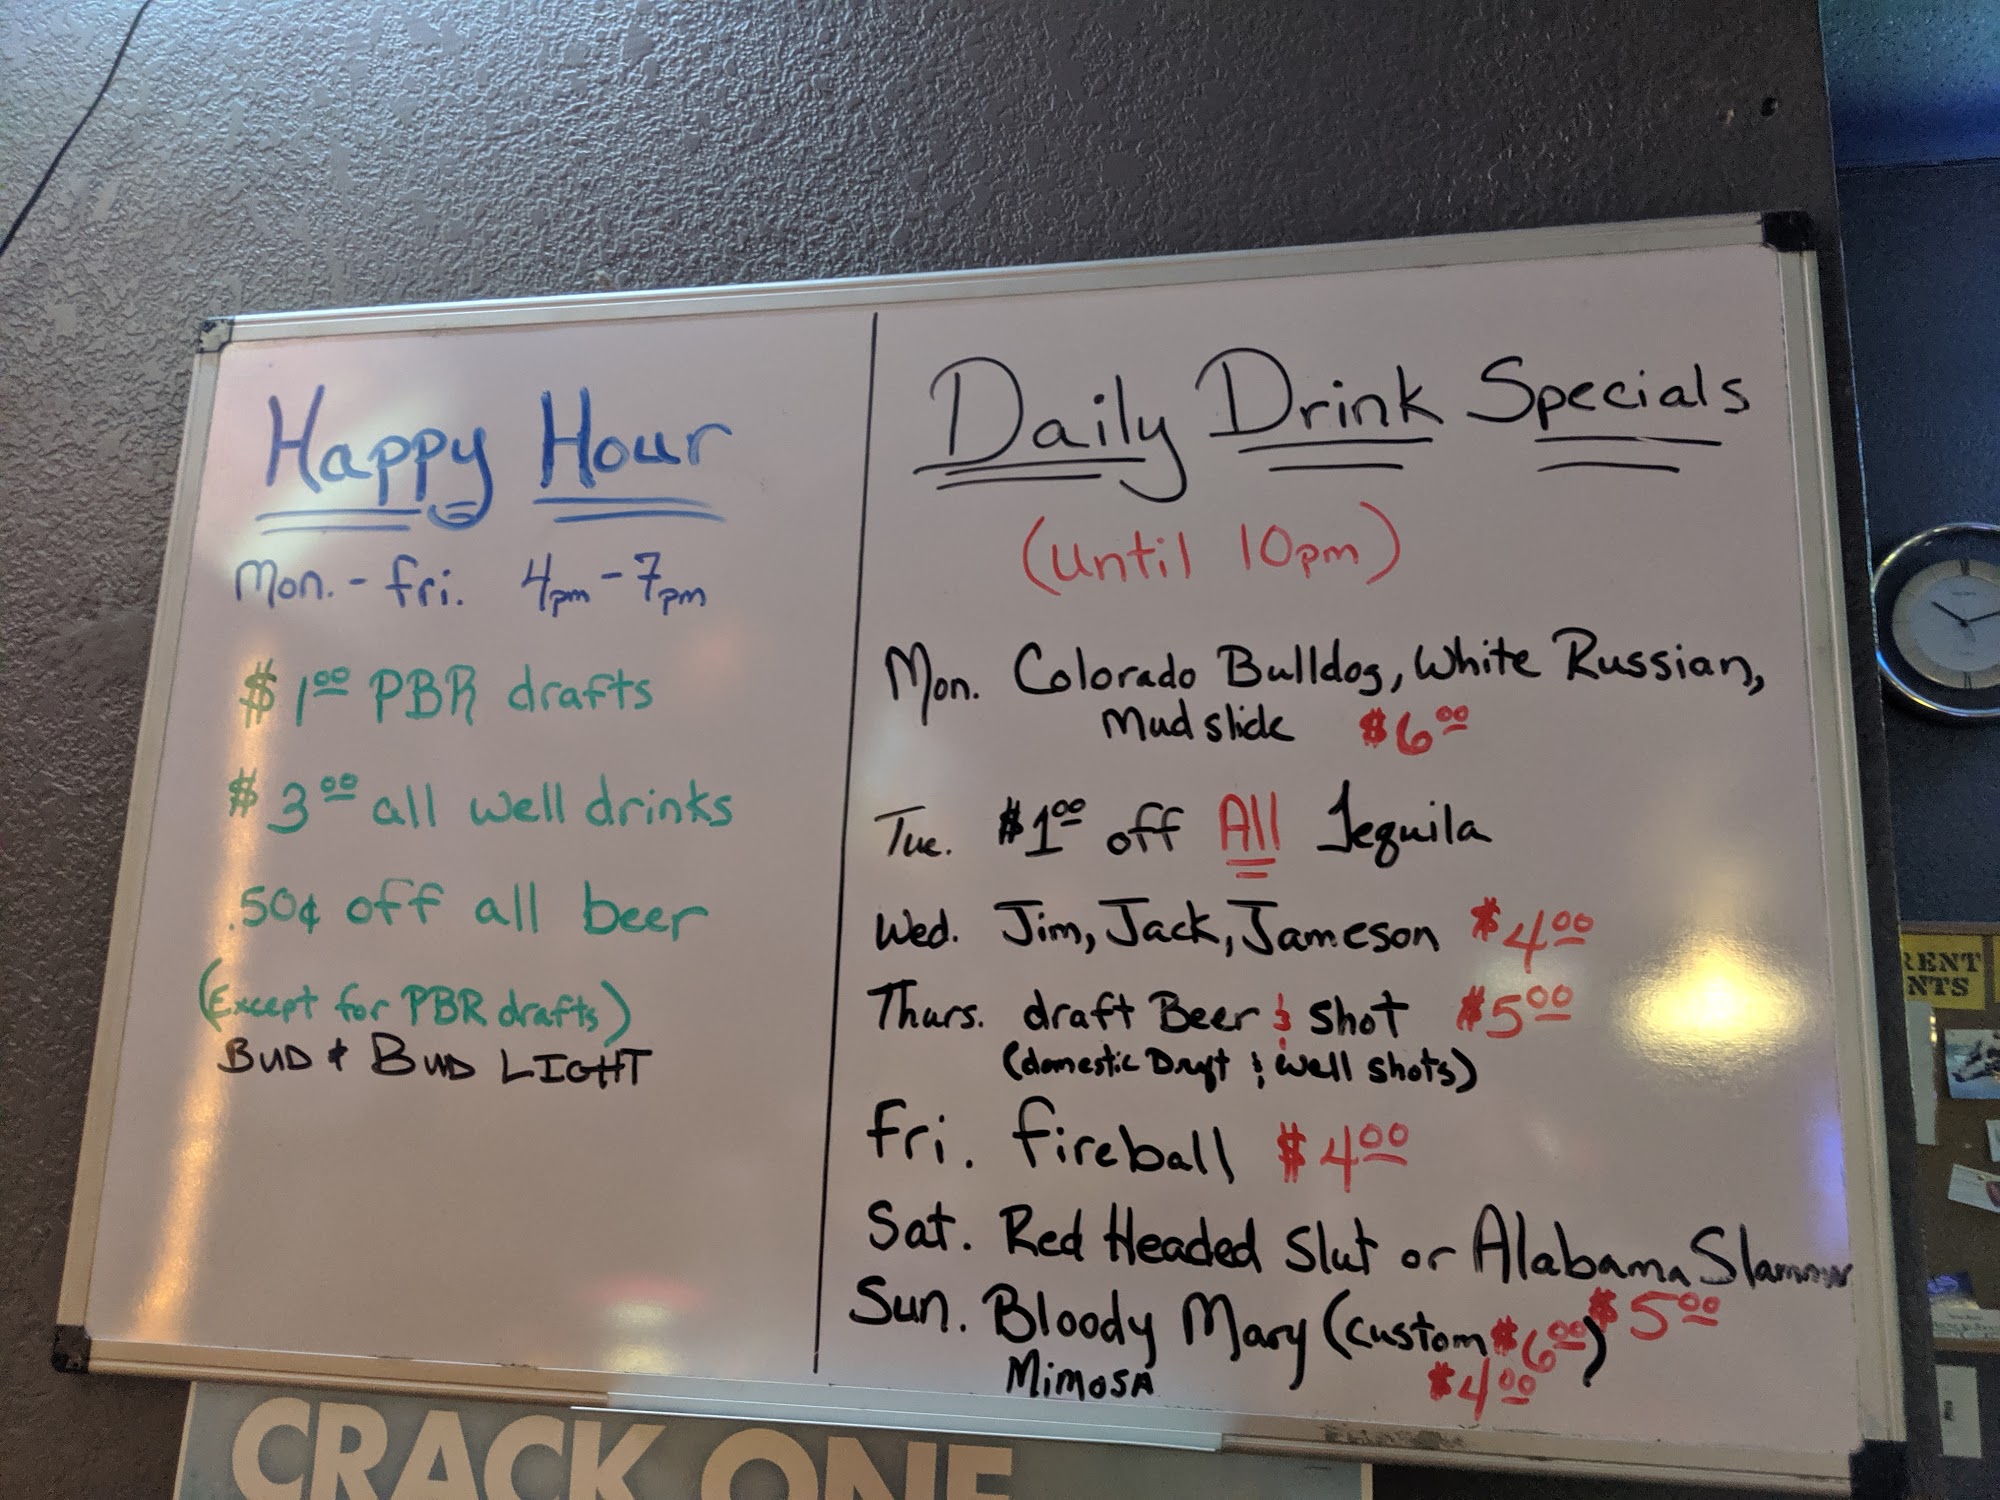 Happy Hour
Mon. - Fri. 4pm - 7pm
$1.00 PBR drafts
$3.00 all well drinks
.50¢ off all beer
(Except for PBR drafts)
BUD & BUD LIGHT
Daily Drink Specials
(until 10pm)
Mon. Colorado Bulldog, White Russian,
Mudslide $6.00
Tue. $1.00 off All Tequila
Wed. Jim, Jack, Jameson $4.00
Thurs. draft Beer & shot $5.00
(domestic Draft & well shots)
Fri. fireball $4.00
Sat. Red Headed Slut or Alabama Slammer
$5.00
Sun. Bloody Mary (custom $6.00)
Mimosa $4.00
CRACK ONE
RENT
NTS